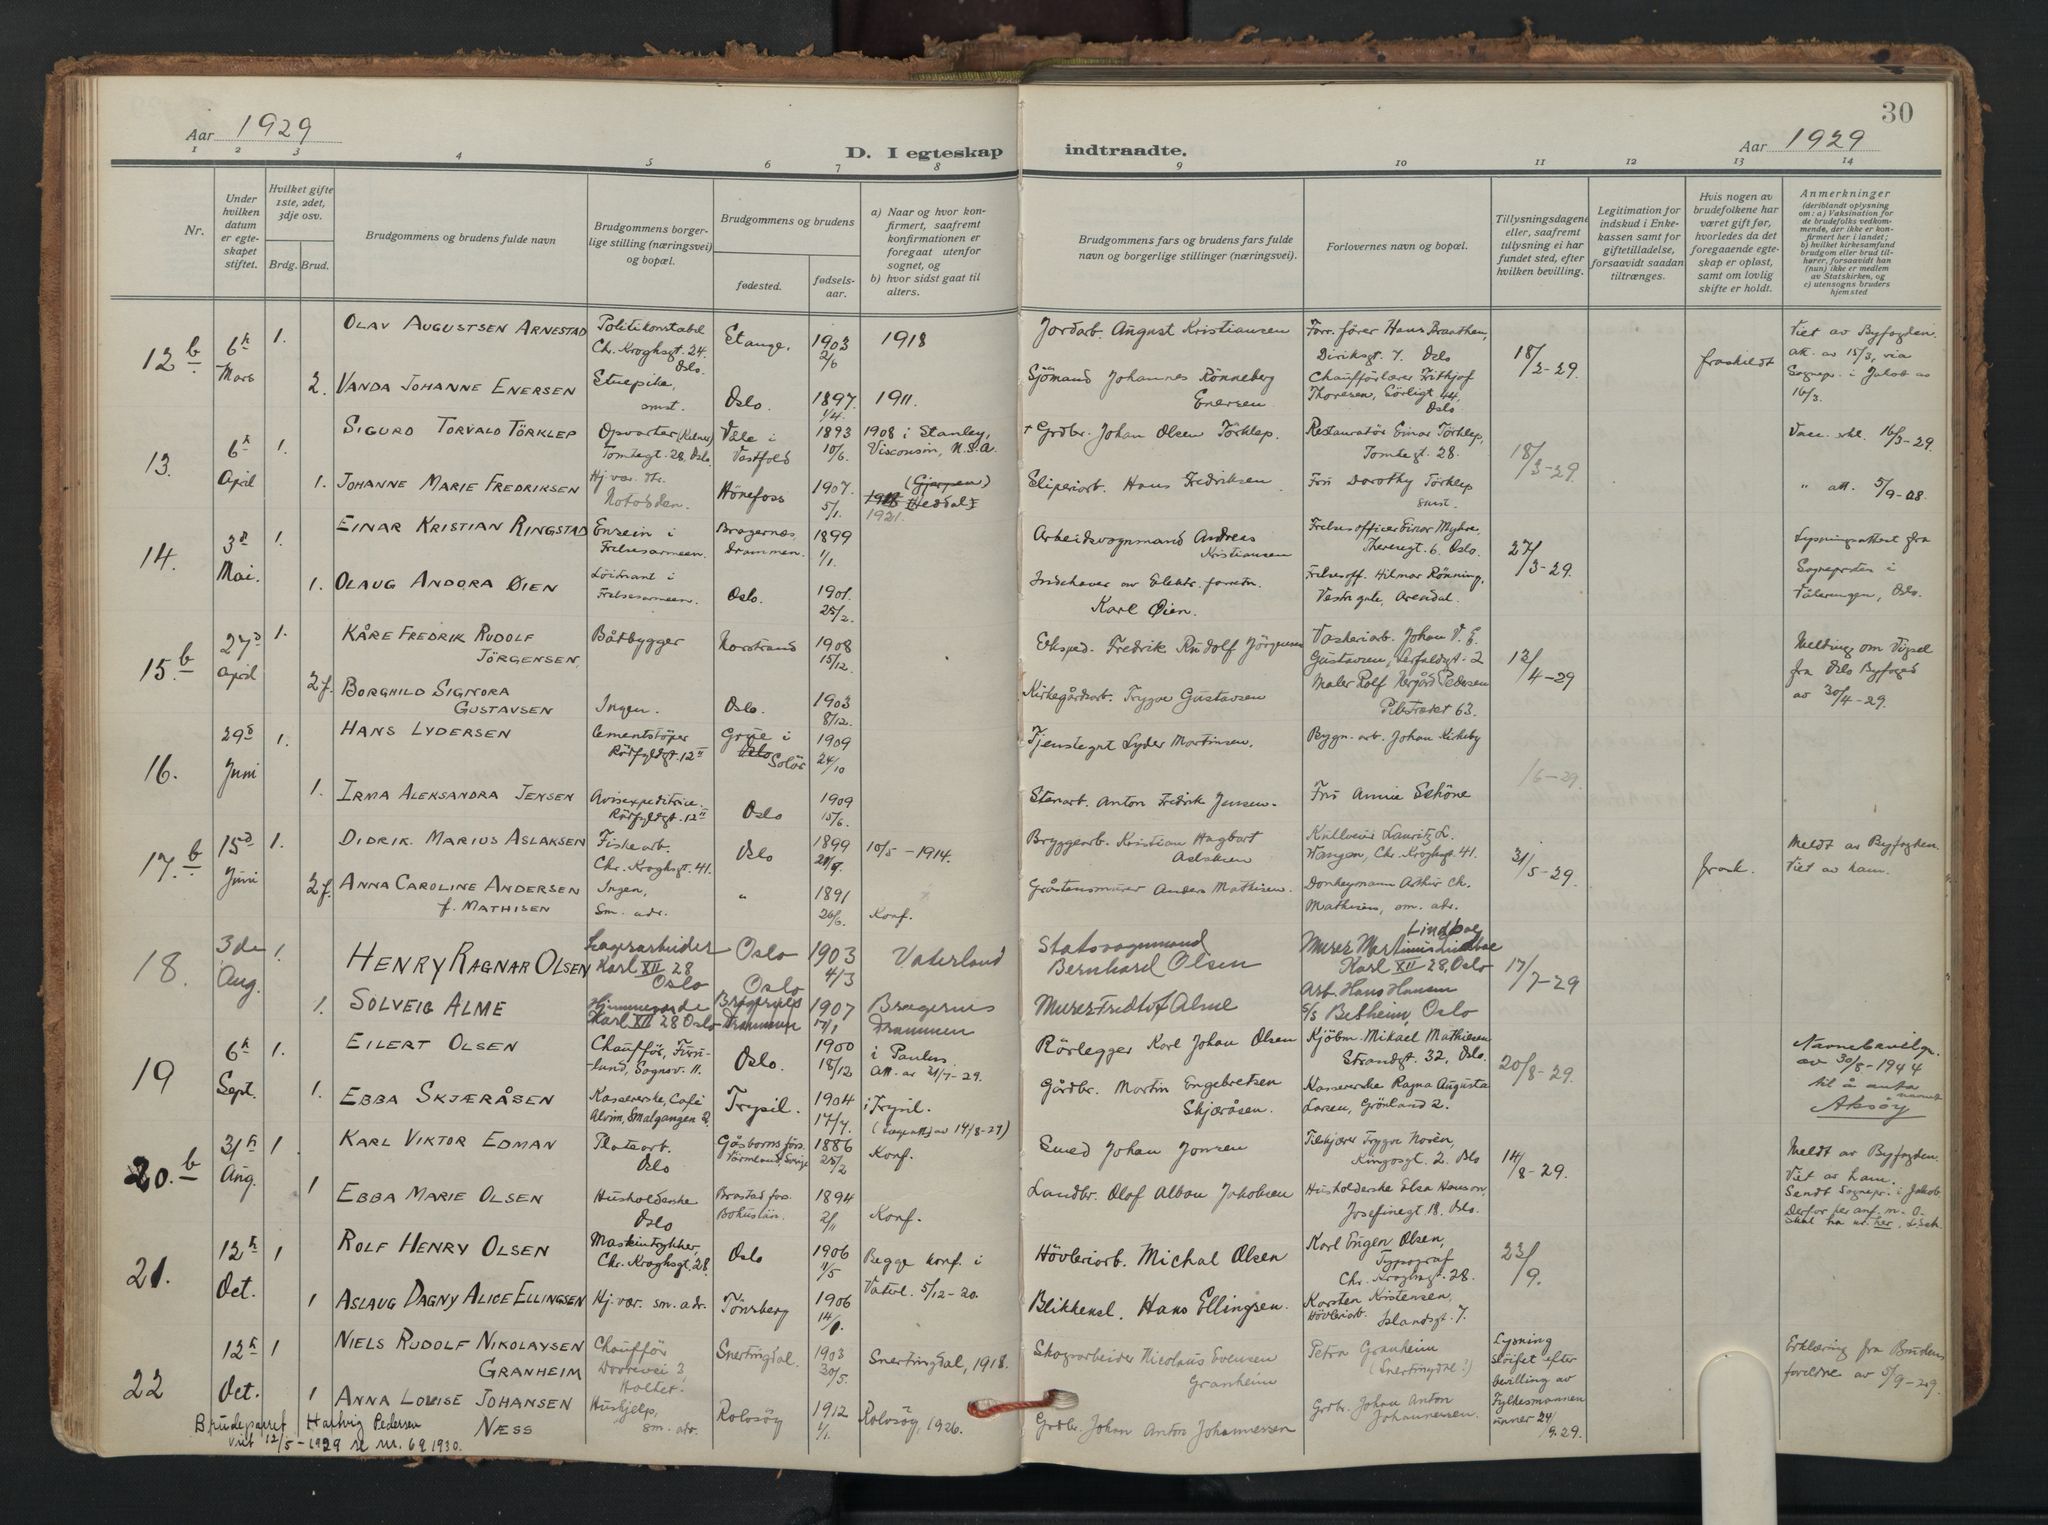 30
Aar 1929
D. I egteskap indtraadte.
Aar 1929
1 2 3 4 5 6 7 8 9 10 11 12 13 14
Nr.
Under hvilken datum er egteskapet stiftet.
Hvilket gifte 1ste, 2det, 3dje osv.
Brdg. Brud.
Brudgommens og brudens fulde navn
Brudgommens borgerlige stilling (næringsvei) og bopæl.
Brudgommens og brudens
fødested.
fødselsaar.
a) Naar og hvor konfirmert, saafremt konfirmationen er foregaat utenfor sognet, og
b) hvor sidst gaat til alters.
Brudgommens fars og brudens fars fulde navn og borgerlige stillinger (næringsvei).
Forlovernes navn og bopæl.
Tillysningsdagene eller, saafremt tillysning ei har fundet sted, efter hvilken bevilling.
Legitimation for indskud i Enkekassen samt for giftetilladelse, forsaavidt saadan tiltrænges.
Hvis nogen av brudefolkene har været gift før, hvorledes da det foregaaende egteskap er opløst, samt om lovlig skifte er holdt.
Anmerkninger
(deriblandt oplysning om: a) Vaksination for de brudefolks vedkommende, der ikke er konfirmert her i landet;
b) hvilket kirkesamfund brudgom eller brud tilhører, forsaavidt han (hun) ikke er medlem av Statskirken, og
c) utensogns bruders hjemsted
12 b 6te Mars 1. Olav Augustsen Arnestad Politikonstabel Chr. Kroghsgt. 24. Oslo. Stange. 1903 2/6 1918 Jordarb. August Kristiansen Forr. fører Hans Braathen, Diriksgt. 7. Oslo 18/3-29. fraskildt Viet av Byfogden. att. av 15/3, via Sognepr. i Jakob av 16/3.
2. Vanda Johanne Enersen Stuepike, smst. Oslo. 1897 1/4. 1911. Sjömand Johannes Rönneberg Enersen Chaufförlærer Frithjof Thoresen, Sörligt. 44, Oslo
13. 6te April 1. Sigurd Torvald Törklep Opvarter (Kelner) Tomtegt. 28. Oslo. Våle i Vestfold 1893 10/6. 1908 i Stanley, Visconsin, N.S.A. † Grdbr. Johan Olsen Törklep. Restauratör Einar Törklep, Tomtegt. 28. 18/3-29 Vaco. 16/3-29.
1. Johanne Marie Fredriksen Hj. vær. Notodden. Hönefoss 1907. 5/1. (Gjerpen) Heddal 1921. Sliperiarb. Hans Fredriksen Fru Dorothy Törklep smst. " att. 5/9-28.
14. 3de Mai. 1. Einar Kristian Ringstad Ensein i Frelsesarmeen. Bragernes Drammen. 1899 1/1. Arbeidsvognmand Andreas Kristiansen Frelsesofficer Einar Myhre, Theresegt. 6. Oslo. 27/3-29. Lysningsattest fra Sogneprsten i Vålerengen, Oslo.
1. Olaug Andora Øien Löitnant i Frelsesarmeen. Oslo. 1901. 25/2. Indehaver av Elektr. forretn. Karl Øien. Frelsesoff. Hilmar Rönning, Vestre gate, Arendal.
15. b 27de April 1. Kåre Fredrik Rudolf Jörgensen. Båtbygger Norstrand 1908 15/12. Eksped. Fredrik Rudolf Jörgensen Vaskeriarb. Johan V. E. Gustavsen, Herfaldsgt. 2 12/4-29 Melding om Vigsel fra Oslo Byfogd av 30/4-29.
2 f. Borghild Signora Gustavsen Ingen. Oslo. 1903 8/12. Kirkegårdsarb. Trygve Gustavsen Maler Rolf Nergård Pedersen Pilestrædet 63.
16. 29de Juni 1. Hans Lydersen Cementstöper Rödfyldgt. 12 II Grue i Solör 1909 24/10 Tjenstegut Lyder Martinsen. Bygn. arb. Johan Kirkeby /6-29.
1. Irma Aleksandra Jensen Avisexpeditrice. Rödfyldgt. 12 II Oslo 1909 15/6. Stenarb. Anton Fredrik Jensen. Fru Annie Schöne
17. b 15de Juni 1. Didrik Marius Aslaksen Fiskearb. Chr. Kroghsgt. 41. Oslo 1899 10/5-1914. Bryggerarb. Kristian Hagbart Aslaksen Kullveier Lauritz L. Wangen, Chr. Kroghsgt. 41. 31/5-29. frask. Meldt av Byfogden. Viet av ham.
2 f. Anna Caroline Andersen f. Mathisen Ingen, sm. adr. " 1891 26/6. Konf. Gråstensmurer Anders Mathisen. Donkeymann Arthur Chr. Mathisen, sm. adr.
18. 3de Aug. 1. Henry Ragnar Olsen Lagerarbeider Karl XII 28 Oslo Oslo 1903 4/3 Vaterland Statsvognmand Bernhard Olsen Murer Martinius Lindbae Lindbæ Karl XII 28, Oslo 17/7-29
1. Solveig Alme Hjemmeværende Karl XII 28 Oslo Oslo Bragernes Drammen 1907 Bragernes Drammen Murer Fredtof Alme Arb. Hans Hansen S/S Betheim, Oslo
19 6te Sept. 1. Eilert Olsen Chaufför, Furulund, Sognsv. 11. Oslo. 1900 18/12 i Paulus Att. av 21/7-29. Rörlegger Karl Johan Olsen Kjöbm. Mikael Mathiesen Strandgt. 32, Oslo. 20/8-29. Navnebevilgn. av 30/8-1944 til å anta navnet Aksöy
1. Ebba Skjæråsen Kassererske, Café Alvim, Smalgangen 2. Trysil. 1904 17/7. i Trysil. av 14/8-29) Gårdbr. Martin Engebretsen Skjæråsen. Kassererske Ragna Augusta Larsen, Grönland 2.
20. b 31te Aug. 1 Karl Viktor Edman Platearb. Oslo Gåsborns förs. Värmland, Sverige 1886 25/2 Konf. Smed Johan Jonsen Tilskjærer Trygve Norén, Kingosgt. 2. Oslo 14/8-29. Meldt av Byfogden. Viet av ham. Sendt Sognepr. i Jakob. Derfor per anf. m. O. Skal ha nr. her,
1 Ebba Marie Olsen Husholderske Oslo Brastad förs. Bohuslän. 1894 2/11 Konf. Landbr. Olof Alban Jakobsen Husholderske Elsa Hanson, Josefinegt. 18. Oslo.
21. 12te Oct. 1 Rolf Henry Olsen Maskintrykker, Chr. Kroghsgt. 28. Oslo 1906 11/5 Begge konf. i Vaterl. 5/12-20. Hövleriarb. Michal Olsen Karl Eugen Olsen, Typograf Chr. Kroghsgt. 28. 23/9.
1 Aslaug Dagny Alice Ellingsen Hj. vær. sm. adr. Tönsberg 1906 Blikkensl. Hans Ellingsen. Karsten Kristensen, Hövleriarb. Islandsgt. 7.
22 12te Oct. 1 Niels Rudolf Nikolaysen Granheim Chaufför Dovrevei 3, Holter. Snertingdal. 1903 20/5. Snertingdal, 1918. Skogsarbeider Nicolaus Evensen Granheim Petra Granheim (Snertingdal?) Lysning slöifet efter bevilling av Fylkesmannen unner 24/9.29. Erklæring fra Brudens foreldre av 5/9-29.
1 Anna Lovise Johansen Næss Hushjelp, sm. adr. Rolvsöy 1912 1/1. Rolvsöy, 1926. Grdbr. Johan Anton Johannessen Grdbr. Johan Anton Johannessen.
Brudeparret Hartvig Pedersen viet 12/5-1929 se nr. 69 1930.